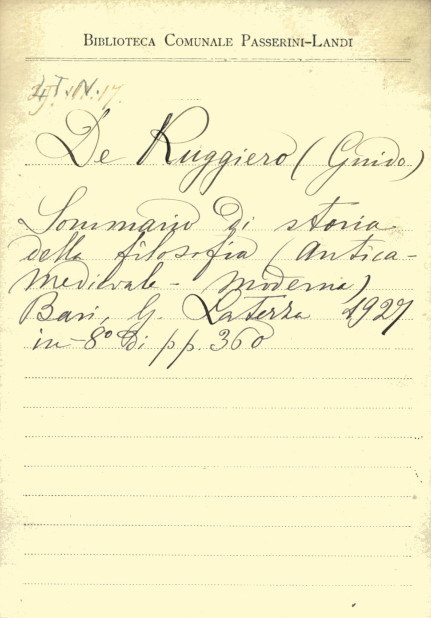 BIBLIOTECA COMUNALE PASSERINI-LANDI
De Ruggiero (Guido)
Sommario di storia
della filosofia (Antica-
medievale - moderna)
Bari, G. Laterza 1927
in-8º di pp. 360